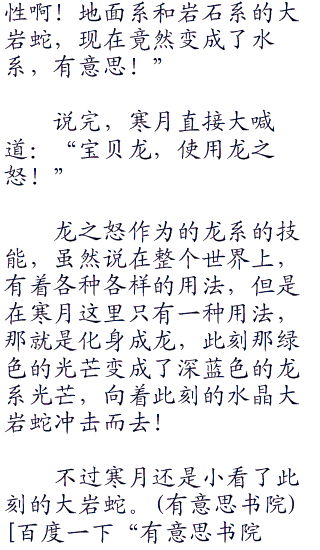 性啊！地面系和岩石系的大
岩蛇，现在竟然变成了水
系，有意思！”
说完，寒月直接大喊
道：“宝贝龙，使用龙之
怒！”
龙之怒作为的龙系的技
能，虽然说在整个世界上，
有着各种各样的用法，但是
在寒月这里只有一种用法，
那就是化身成龙，此刻那绿
色的光芒变成了深蓝色的龙
系光芒，向着此刻的水晶大
岩蛇冲击而去！
不过寒月还是小看了此
刻的大岩蛇。(有意思书院)
[百度一下“有意思书院